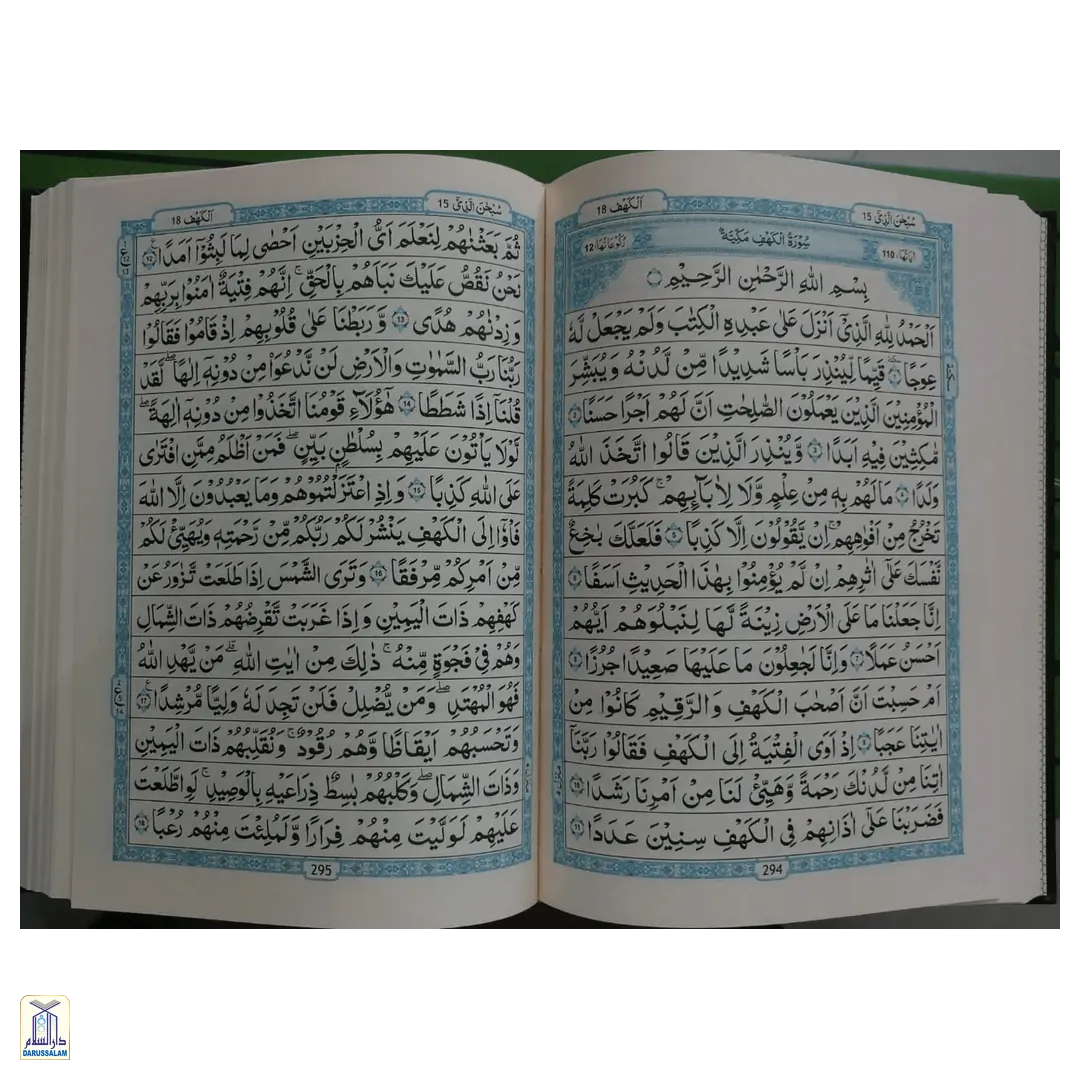 سُبْحٰنَ الَّذِيْۤ 15
اَلْكَهْف 18
اٰيَاتُهَا 110
سُوْرَةُ الْكَهْفِ مَكِّيَّةٌ
رُكُوْعَاتُهَا 12
بِسْمِ اللّٰهِ الرَّحْمٰنِ الرَّحِيْمِ
اَلْحَمْدُ لِلّٰهِ الَّذِيْۤ اَنْزَلَ عَلٰى عَبْدِهِ الْكِتٰبَ وَلَمْ يَجْعَلْ لَّهٗ
عِوَجًا ۜ 1 قَيِّمًا لِّيُنْذِرَ بَاْسًا شَدِيْدًا مِّنْ لَّدُنْهُ وَيُبَشِّرَ
الْمُؤْمِنِيْنَ الَّذِيْنَ يَعْمَلُوْنَ الصّٰلِحٰتِ اَنَّ لَهُمْ اَجْرًا حَسَنًا 2
مّٰكِثِيْنَ فِيْهِ اَبَدًا 3 وَّيُنْذِرَ الَّذِيْنَ قَالُوا اتَّخَذَ اللّٰهُ
وَلَدًا 4 مَا لَهُمْ بِهٖ مِنْ عِلْمٍ وَّلَا لِاٰبَآىِٕهِمْ ۚ كَبُرَتْ كَلِمَةً
تَخْرُجُ مِنْ اَفْوَاهِهِمْ ۚ اِنْ يَّقُوْلُوْنَ اِلَّا كَذِبًا 5 فَلَعَلَّكَ بَاخِعٌ
نَّفْسَكَ عَلٰۤى اٰثَارِهِمْ اِنْ لَّمْ يُؤْمِنُوْا بِهٰذَا الْحَدِيْثِ اَسَفًا 6
اِنَّا جَعَلْنَا مَا عَلَى الْاَرْضِ زِيْنَةً لَّهَا لِنَبْلُوَهُمْ اَيُّهُمْ
اَحْسَنُ عَمَلًا 7 وَاِنَّا لَجٰعِلُوْنَ مَا عَلَيْهَا صَعِيْدًا جُرُزًا 8
اَمْ حَسِبْتَ اَنَّ اَصْحٰبَ الْكَهْفِ وَالرَّقِيْمِ كَانُوْا مِنْ
اٰيٰتِنَا عَجَبًا 9 اِذْ اَوَى الْفِتْيَةُ اِلَى الْكَهْفِ فَقَالُوْا رَبَّنَاۤ
اٰتِنَا مِنْ لَّدُنْكَ رَحْمَةً وَّهَيِّئْ لَنَا مِنْ اَمْرِنَا رَشَدًا 10
فَضَرَبْنَا عَلٰۤى اٰذَانِهِمْ فِي الْكَهْفِ سِنِيْنَ عَدَدًا 11
294
سُبْحٰنَ الَّذِيْۤ 15
اَلْكَهْف 18
ثُمَّ بَعَثْنٰهُمْ لِنَعْلَمَ اَيُّ الْحِزْبَيْنِ اَحْصٰى لِمَا لَبِثُوْۤا اَمَدًا 12
نَحْنُ نَقُصُّ عَلَيْكَ نَبَاَهُمْ بِالْحَقِّ ۚ اِنَّهُمْ فِتْيَةٌ اٰمَنُوْا بِرَبِّهِمْ
وَزِدْنٰهُمْ هُدًى 13 وَّرَبَطْنَا عَلٰى قُلُوْبِهِمْ اِذْ قَامُوْا فَقَالُوْا
رَبُّنَا رَبُّ السَّمٰوٰتِ وَالْاَرْضِ لَنْ نَّدْعُوَا۟ مِنْ دُوْنِهٖۤ اِلٰهًا ۖ لَّقَدْ
قُلْنَاۤ اِذًا شَطَطًا 14 هٰۤؤُلَآءِ قَوْمُنَا اتَّخَذُوْا مِنْ دُوْنِهٖۤ اٰلِهَةً ۖ
لَوْلَا يَاْتُوْنَ عَلَيْهِمْ بِسُلْطٰنٍۭ بَيِّنٍ ۖ فَمَنْ اَظْلَمُ مِمَّنِ افْتَرٰى
عَلَى اللّٰهِ كَذِبًا 15 وَاِذِ اعْتَزَلْتُمُوْهُمْ وَمَا يَعْبُدُوْنَ اِلَّا اللّٰهَ
فَاْوٗۤا اِلَى الْكَهْفِ يَنْشُرْ لَكُمْ رَبُّكُمْ مِّنْ رَّحْمَتِهٖ وَيُهَيِّئْ لَكُمْ
مِّنْ اَمْرِكُمْ مِّرْفَقًا 16 وَتَرَى الشَّمْسَ اِذَا طَلَعَتْ تَّزٰوَرُ عَنْ
كَهْفِهِمْ ذَاتَ الْيَمِيْنِ وَاِذَا غَرَبَتْ تَّقْرِضُهُمْ ذَاتَ الشِّمَالِ
وَهُمْ فِيْ فَجْوَةٍ مِّنْهُ ۚ ذٰلِكَ مِنْ اٰيٰتِ اللّٰهِ ۗ مَنْ يَّهْدِ اللّٰهُ
فَهُوَ الْمُهْتَدِ ۖ وَمَنْ يُّضْلِلْ فَلَنْ تَجِدَ لَهٗ وَلِيًّا مُّرْشِدًا 17
وَتَحْسَبُهُمْ اَيْقَاظًا وَّهُمْ رُقُوْدٌ ۖ وَّنُقَلِّبُهُمْ ذَاتَ الْيَمِيْنِ
وَذَاتَ الشِّمَالِ ۖ وَكَلْبُهُمْ بَاسِطٌ ذِرَاعَيْهِ بِالْوَصِيْدِ ۚ لَوِ اطَّلَعْتَ
عَلَيْهِمْ لَوَلَّيْتَ مِنْهُمْ فِرَارًا وَّلَمُلِئْتَ مِنْهُمْ رُعْبًا 18
295
دارالسلام
DARUSSALAM